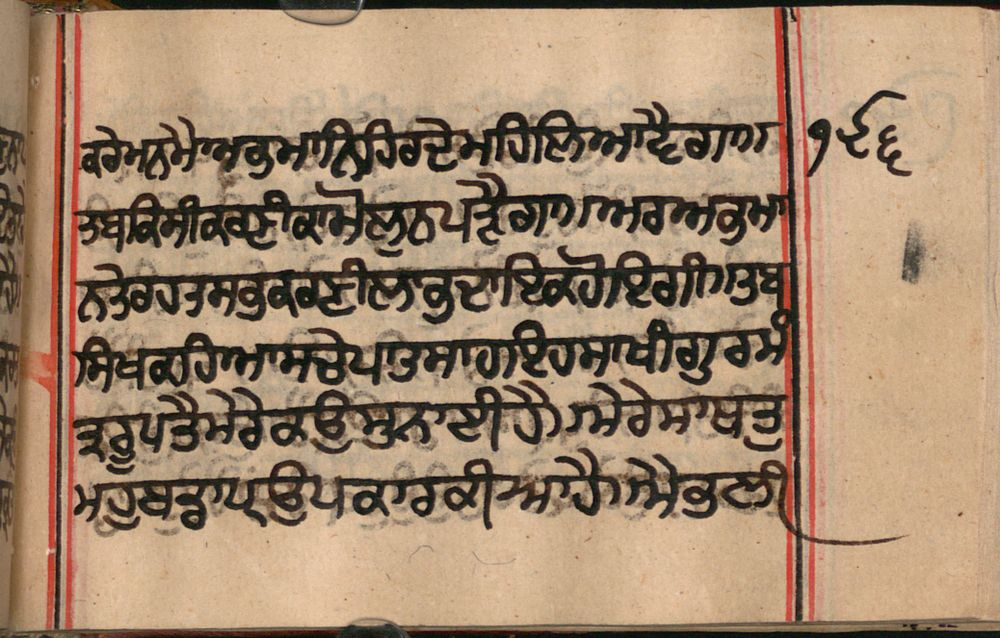 ਕਰੇ ਮਨ ਮੈ ਅਕੁਮਾਨਿ ਹਿਰਦੇ ਮਹਿ ਲਿਆਵੈਗਾ॥ ੧੬੬
ਤਬ ਕਿਸੀ ਕਰਣੀ ਕਾ ਮੋਲੁ ਨ ਪੜੈਗਾ॥ ਅਰ ਅਕੁਮਾ
ਨ ਤੇ ਰਹਤ ਸਭੁ ਕਰਣੀ ਲਾਭੁਦਾਇਕ ਹੋਇਗੀ॥ ਤਬ
ਸਿਖ ਕਹਿਆ ਸਚੇ ਪਾਤਸਾਹ ਇਹ ਸਾਖੀ ਗੁਰਮੰ
ਤ੍ਰ ਰੂਪ ਤੈ ਮੇਰੇ ਕਉ ਸੁਨਾਈ ਹੈ॥ ਮੇਰੇ ਸਾਥ ਤੁ
ਮਹੁ ਬਡਾ ਪ੍ਰਉਪਕਾਰ ਕੀਆ ਹੈ॥ ਮੈ ਭਲੀ